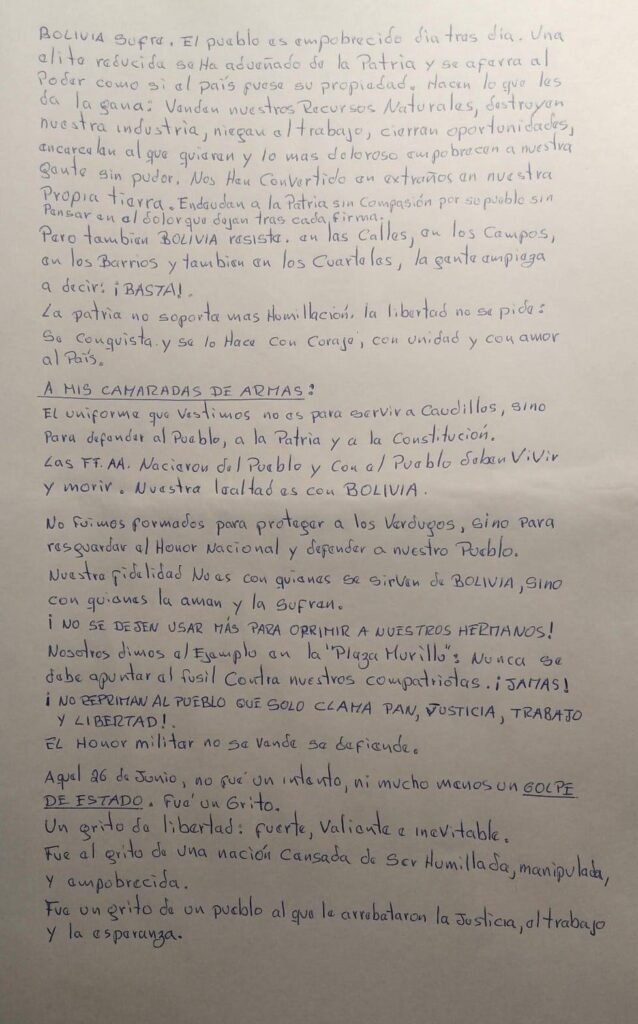 BOLIVIA sufre. El pueblo es empobrecido dia tras dia. Una
elite reducida se Ha adueñado de la Patria y se aferra al
Poder como si el país fuese su propiedad. Hacen lo que les
da la gana: Venden nuestros Recursos Naturales, destruyen
nuestra industria, niegan el trabajo, cierran oportunidades,
encarcelan al que quieren y lo mas doloroso empobrecen a nuestra
gente sin pudor. Nos Han Convertido en extraños en nuestra
Propia tierra. Endeudan a la Patria sin Compasión por su pueblo sin
Pensar en el dolor que dejan tras cada firma.
Pero tambien BOLIVIA resiste. en las Calles, en los Campos,
en los Barrios y tambien en los Cuarteles, la gente empieza
a decir: ¡BASTA!.
La patria no soporta mas Humillación. la libertad no se pide:
Se Conquista. y se lo Hace con Coraje, con unidad y con amor
al País.
A MIS CAMARADAS DE ARMAS:
El uniforme que Vestimos no es para servir a Caudillos, sino
Para defender al Pueblo, a la Patria y a la Constitución.
Las FF.AA. Nacieron del Pueblo y Con el Pueblo deben ViVir
y morir. Nuestra lealtad es con BOLIVIA.
No fuimos formados para proteger a los Verdugos, sino Para
resguardar el Honor Nacional y defender a nuestro Pueblo.
Nuestra fidelidad No es con quienes se sirven de BOLIVIA, sino
con quienes la aman y la sufren.
¡NO SE DEJEN USAR MÁS PARA OPRIMIR A NUESTROS HERMANOS!
Nosotros dimos el Ejemplo en la "Plaza Murillo": Nunca se
debe apuntar el fusil Contra nuestros compatriotas. ¡JAMAS!
¡NO REPRIMAN AL PUEBLO QUE SOLO CLAMA PAN, JUSTICIA, TRABAJO
Y LIBERTAD!.
EL Honor militar no se vende se defiende.
Aquel 26 de Junio, no fue un intento, ni mucho menos un GOLPE
DE ESTADO. Fue un Grito.
Un grito de libertad: fuerte, Valiente e inevitable.
Fue el grito de una nación Cansada de Ser Humillada, manipulada,
y empobrecida.
Fue un grito de un pueblo al que le arrebataron la Justicia, el trabajo
y la esperanza.